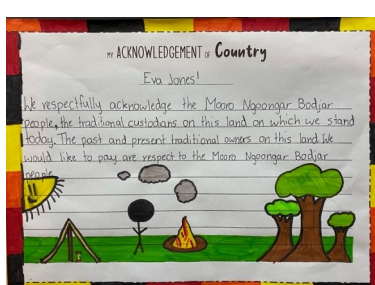 MY ACKNOWLEDGEMENT OF Country
Eva Jones!
We respectfully acknowledge the Mooro Ngoongar Bodjar
people, the traditional custodians on this land on which we stand
today. The past and present traditional owners on this land. We
would like to pay are respect to the Mooro Ngoongar Bodjar
people